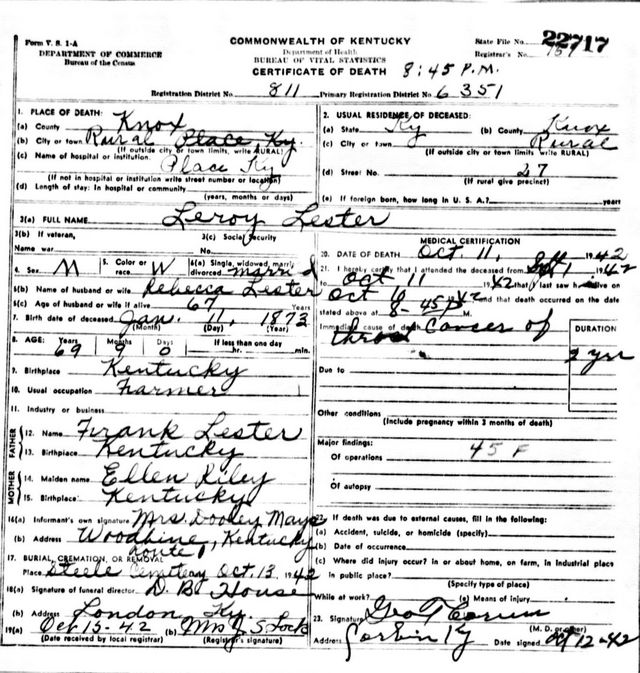 Form V. S. 1-A
DEPARTMENT OF COMMERCE
Bureau of the Census
COMMONWEALTH OF KENTUCKY
Department of Health
BUREAU OF VITAL STATISTICS
CERTIFICATE OF DEATH 8:45 P.M.
State File No. 22717
Registrar's No.
Registration District No. 811 Primary Registration District No. 6351
1. PLACE OF DEATH:
(a) County Knox
(b) City or town Rural Place Ky.
(If outside city or town limits, write RURAL)
(c) Name of hospital or institution:
Place Ky
(If not in hospital or institution write street number or location)
(d) Length of stay: In hospital or community
(years, months or days)
2. USUAL RESIDENCE OF DECEASED:
(a) State Ky (b) County Knox
(c) City or town Rural
(If outside city or town limits write RURAL)
(d) Street No. 27
(If rural give precinct)
(e) If foreign born, how long in U. S. A.? years
3(a) FULL NAME Leroy Lester
3(b) If veteran,
Name war
3(c) Social Security
No.
4. Sex M 5. Color or race W 6(a) Single, widowed, married, divorced married
6(b) Name of husband or wife Rebecca Lester
6(c) Age of husband or wife if alive 67 Years
7. Birth date of deceased Jan. 11, 1873
(Month) (Day) (Year)
8. AGE: Years Months Days If less than one day
69 9 0 hr. min.
9. Birthplace Kentucky
10. Usual occupation Farmer
11. Industry or business
FATHER
12. Name Frank Lester
13. Birthplace Kentucky
MOTHER
14. Maiden name Ellen Riley
15. Birthplace Kentucky
16(a) Informant's own signature Mrs. Dooley Mays
(b) Address Woodbine, Kentucky
Route 1
17. BURIAL, CREMATION, OR REMOVAL
Place Steele Cemetery Oct. 13, 1942
18(a) Signature of funeral director D. B. House
(b) Address London Ky.
19(a) Oct 15-42 (b) Mrs J. S. Lock
(Date received by local registrar) (Registrar's signature)
MEDICAL CERTIFICATION
20. DATE OF DEATH Oct 11, 1942
21. I hereby certify that I attended the deceased from Sept 1 1942
to Oct 11 1942 that I last saw him alive on
Oct 6 1942 and that death occurred on the date
stated above at 8-45 P M.
Immediate cause of death Cancer of
throat
DURATION
2 yrs
Due to
Other conditions
(Include pregnancy within 3 months of death)
Major findings: 45 F
Of operations
Of autopsy
22. If death was due to external causes, fill in the following:
(a) Accident, suicide, or homicide (specify)
(b) Date of occurrence
(c) Where did injury occur? In or about home, on farm, in industrial place
in public place?
(Specify type of place)
While at work? (e) Means of injury
23. Signature Geo T
(M. D. or other)
Address Corbin Ky Date signed Oct 12-42